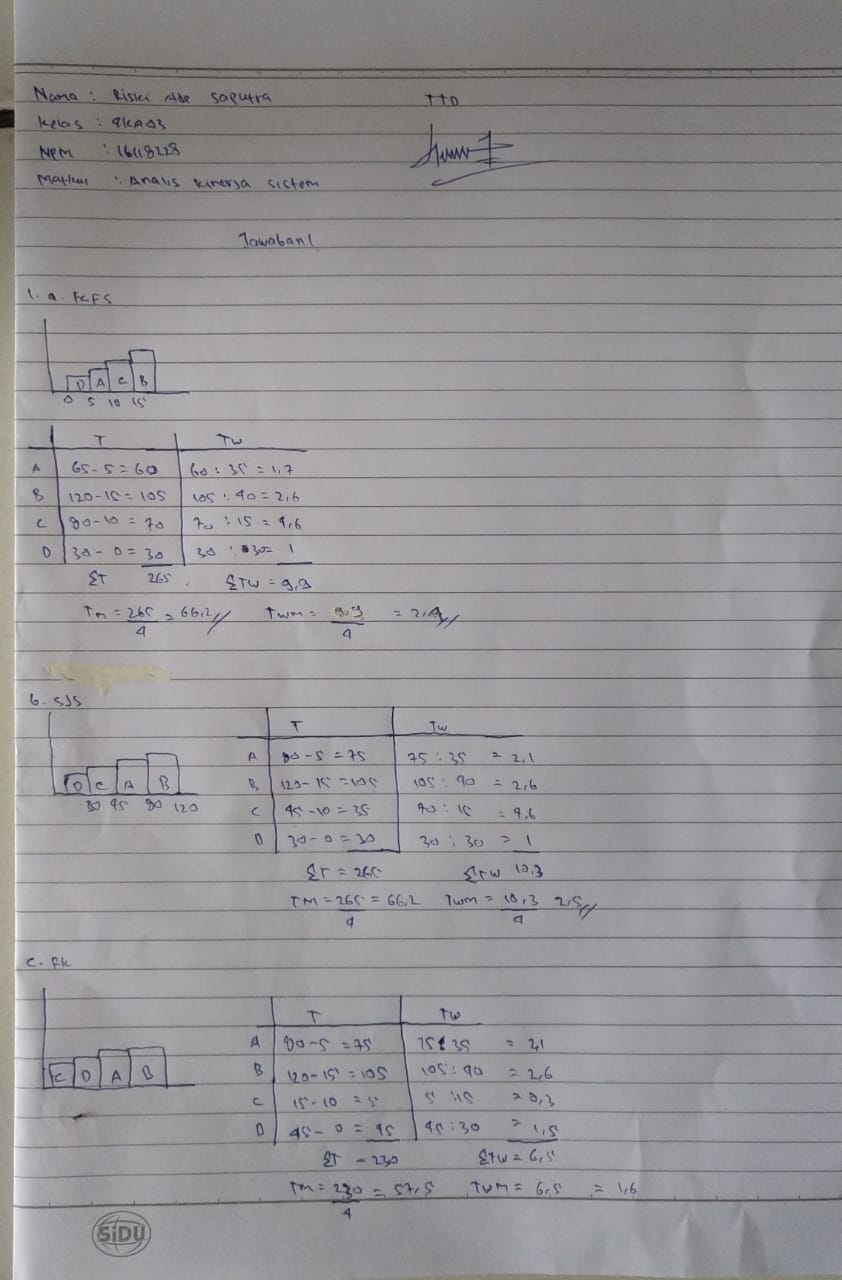 Nama : Riski Ade Saputra
TTD
Kelas : 4KA03
NPM : 16118228
Matkul : Analis kinerja sistem
Jawaban!
1. a. FCFS
D A C B
0 5 10 15
T TW
A 65-5=60 60 : 35 = 1,7
B 120-15=105 105 : 40 = 2,6
C 80-10=70 70 : 15 = 4,6
D 30-0=30 30 : 30= 1
ΣT 265 ΣTW = 9,9
TM = 265 = 66,2 TWM = 9,9 = 2,4
4 4
b. SJS
D C A B
30 45 80 120
T TW
A 80-5=75 75 : 35 = 2,1
B 120-15=105 105 : 40 = 2,6
C 45-10=35 : 15 = 4,6
D 30-0=30 30 : 30 = 1
ΣT = 265 ΣTW 10,3
TM = 265 = 66,2 TWM = 10,3 2,5
4 4
C.
C D A B
T TW
A 80-5=75 75 : 35 = 2,1
B 120-15=105 105 : 40 = 2,6
C 15-10=5 5 : 15 = 0,3
D 45-0=45 45 : 30 = 1,5
ΣT = 230 ΣTW = 6,5
TM = 230 = 57,5 TWM = 6,5 = 1,6
4
SiDU